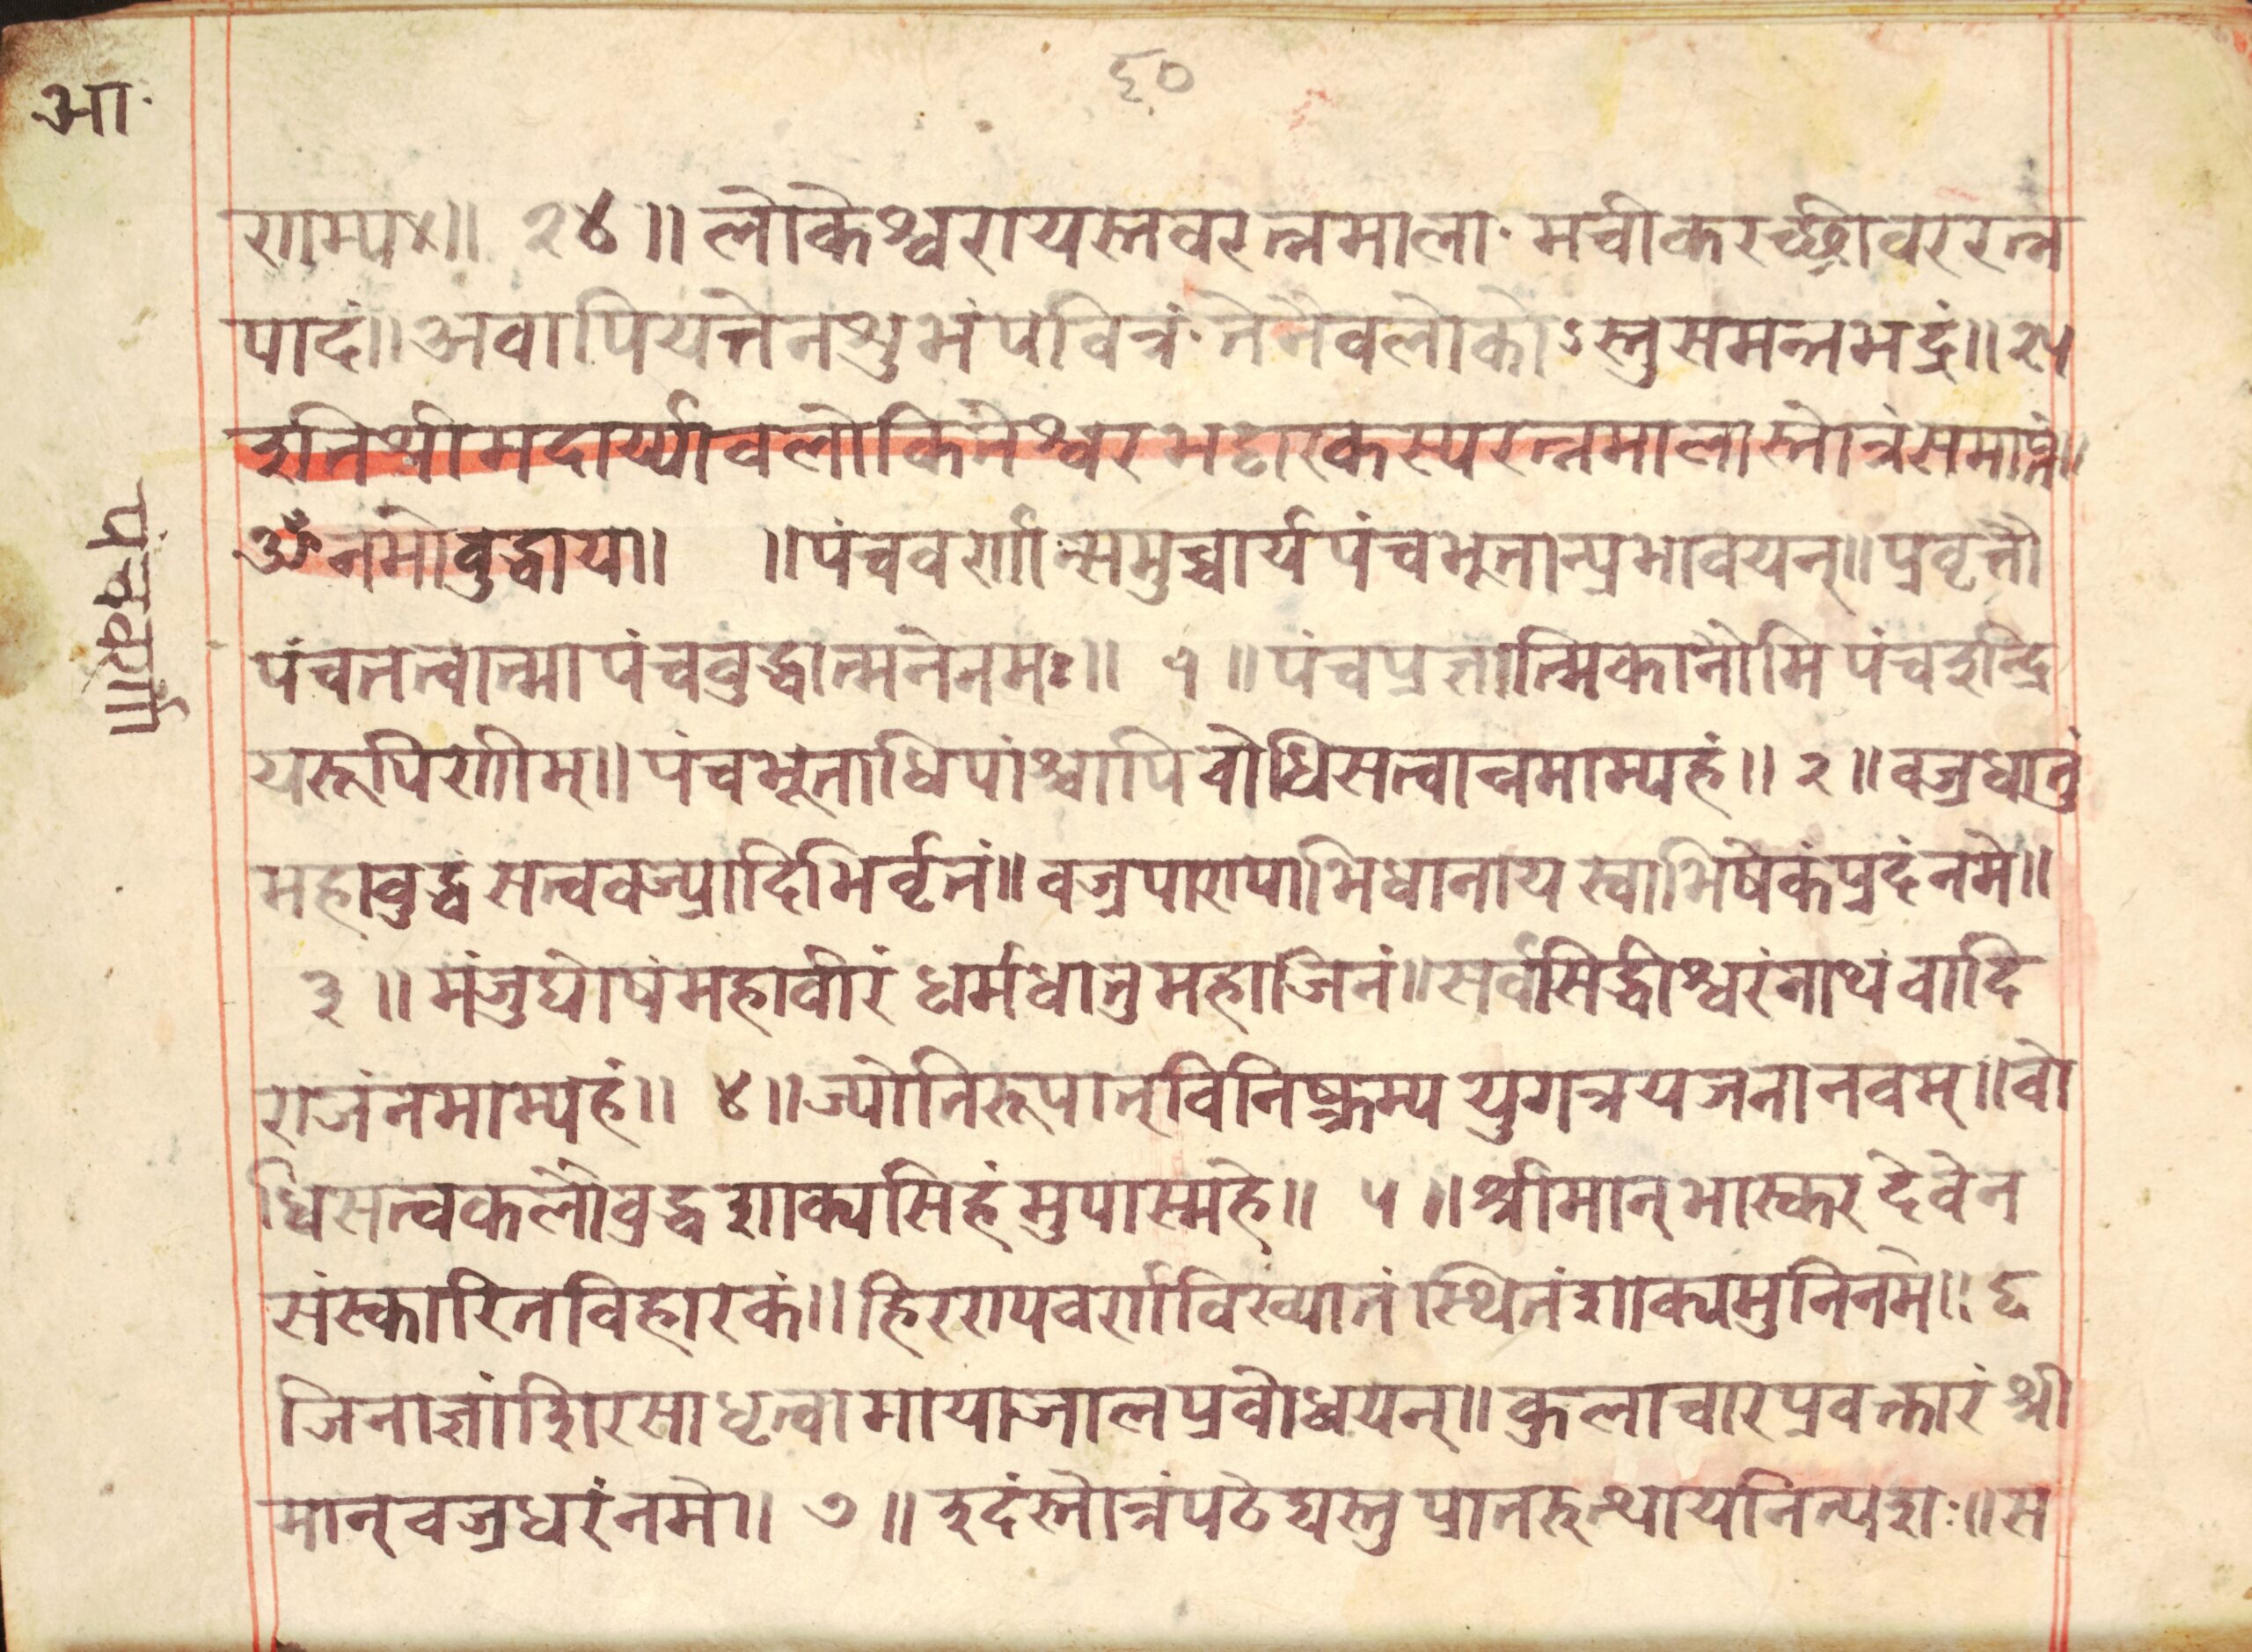 ६०
आ.
णाम्पः॥ २४॥ लोकेश्वरायस्तवरत्नमाला. मचीकरच्छ्रीवररत्न
पादं॥अवापियत्तेनशुभंपवित्रं. तेनैवलोकोऽस्तुसमन्तभद्रं॥२५
इतिश्रीमदार्य्यावलोकितेश्वरभट्टारकस्यरत्नमालास्तोत्रंसमाप्तं॥
ॐनमोवुद्धाय॥ ॥पंचवर्णान्समुच्चार्यपंचभूतान्प्रभावयन्॥प्रवृत्तौ
पंचतत्वात्मापंचवुद्धात्मनेनमः॥ १॥पंचप्रज्ञात्मिकानौमिपंचइन्द्रि
यरूपिणीम्॥पंचभूताधिपांश्चापिवोधिसत्वान्नमाम्यहं॥२॥वज्रधातुं
महावुद्धंसत्ववज्य्रादिभिर्वृतं॥वज्रपाण्याभिधानायस्वाभिषेकंप्रदंनमे॥
३॥मंजुघोषंमहावीरंधर्मधातुमहाजिनं॥सर्वसिद्धीश्वरंनाथंवादि
राजंनमाम्यहं॥ ४॥ज्योतिरूपात्विनिष्क्रम्ययुगत्रयजनानवम्॥वो
धिसत्वकलौवुद्धशाक्यसिंहंमुपास्महे॥ ५॥श्रीमान्भास्करदेवेन
संस्कारितविहारकं॥हिरण्यवर्णविख्यातंस्थितंशाक्यमुनिनमे॥६
जिनाज्ञांशिरसाधृत्वामायाजालप्रवोधयन्॥कुलाचारप्रवक्तारंश्री
मान्वज्रधरंनमे॥ ७॥इदंस्तोत्रंपठेद्यस्तुप्रातरुत्थायनित्यशः॥स
पंचवर्णा